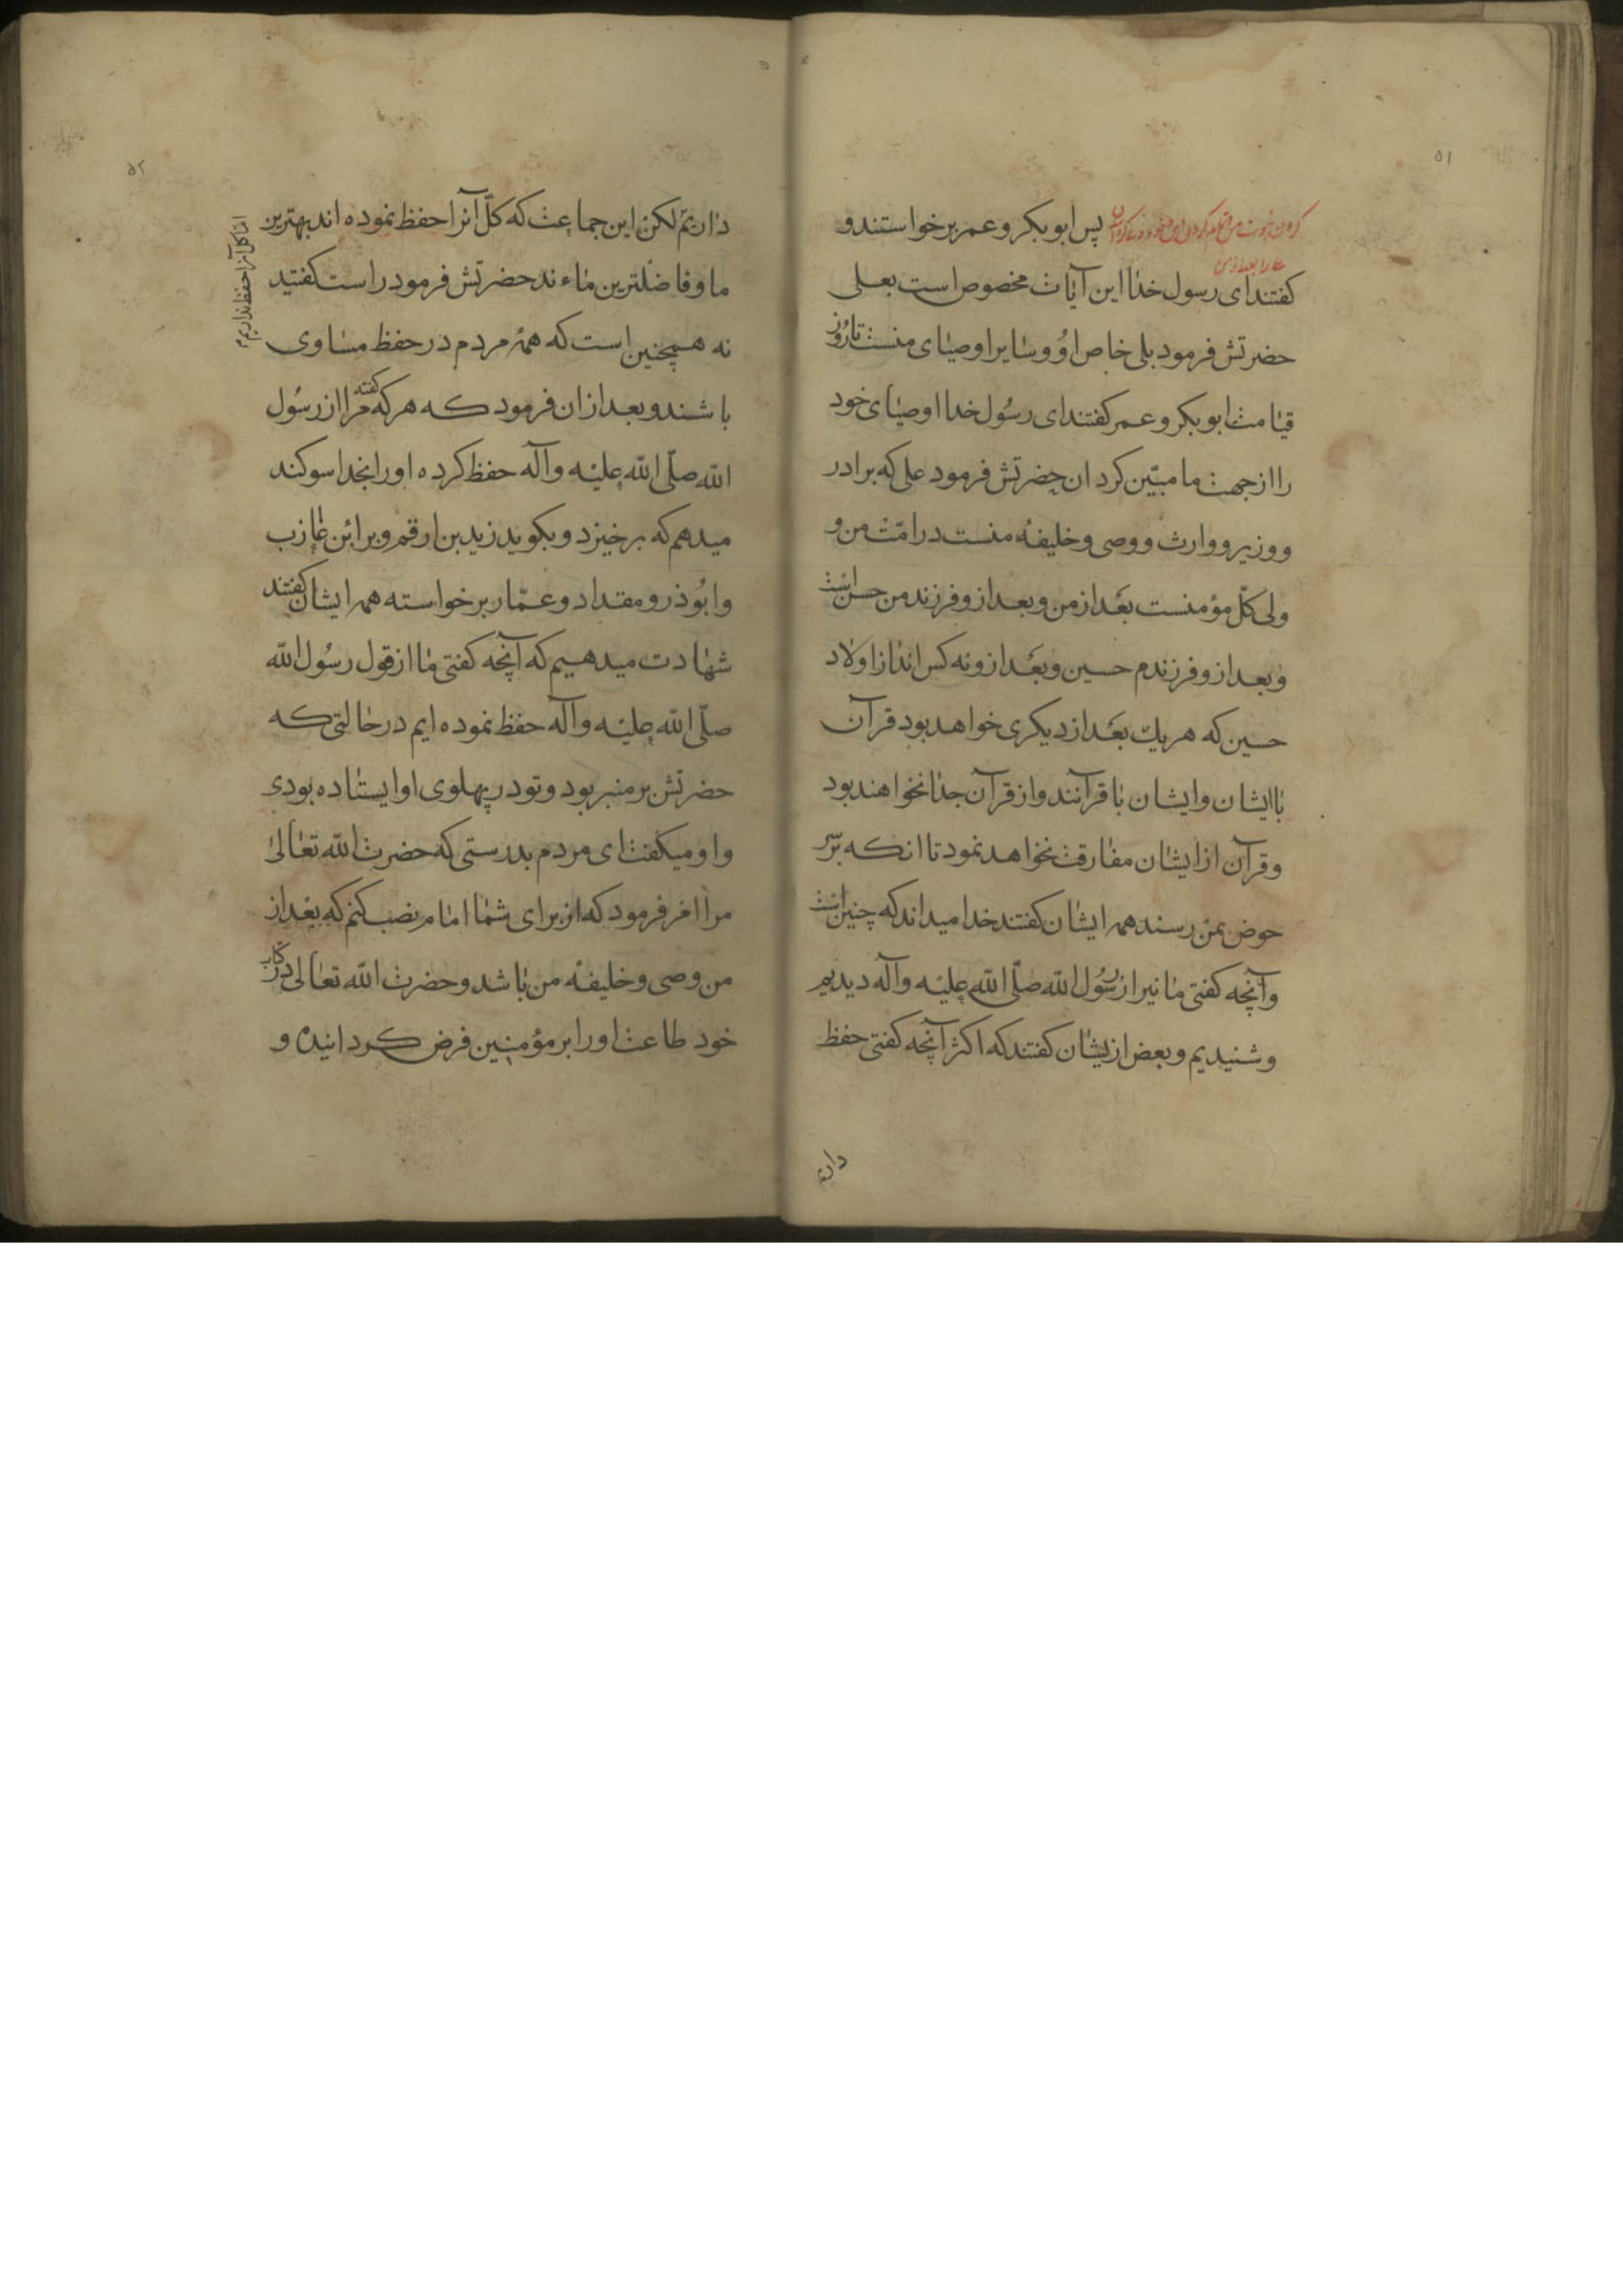 ۵۱
پس ابوبکر و عمر برخواستند و
کفتند ای رسول خدا این آیات مخصوص است بعلی
حضرتش فرمود بلی خاص او و سایر اوصیای منست تا روز
قیامت ابوبکر و عمر کفتند ای رسول خدا اوصیای خود
را از جهت ما مبیّن کردان حضرتش فرمود علی که برادر
و وزیر و وارث و وصی و خلیفهٔ منست در امّت من و
ولی کلّ مؤمنست بعد از من و بعد ازو فرزند من حسن است
و بعد ازو فرزندم حسین و بعد ازو نه کس اند از اولاد
حسین که هر یک بعد از دیکری خواهد بود قرآن
با ایشان و ایشان با قرآنند و از قرآن جدا نخواهند بود
و قرآن از ایشان مفارقت نخواهد نمود تا انکه بر سر
حوض بمن رسند همه ایشان کفتند خدا میداند که چنین است
و آنچه کفتی ما نیز از رسول الله صلّی الله علیه وآله دیدیم
و شنیدیم و بعض ازیشان کفتند که اکثر آنچه کفتی حفظ
داریم
۵۲
داریم لکن این جماعت که کلّ آنرا حفظ نموده اند بهترین
اما کل آنرا حفظ نداریم
ما و فاضلترین ماء ند حضرتش فرمود راست کفتید
نه همچنین است که همهٔ مردم در حفظ مساوی
باشند و بعد ازان فرمود که هر که کفته مرا از رسول
الله صلّی الله علیه وآله حفظ کرده اورا بخدا سوکند
میدهم که برخیزد و بکوید زید بن ارقم و براء بن عازب
و ابوذر و مقداد و عمّار برخواسته همه ایشان کفتند
شهادت میدهیم که آنچه کفتی ما از قول رسول الله
صلّی الله علیه وآله حفظ نموده ایم در حالتی که
حضرتش بر منبر بود و تو در پهلوی او ایستاده بودی
و او میکفت ای مردم بدرستی که حضرت الله تعالی
مرا امر فرمود که از برای شما امام نصب کنم که بعد از
من وصی و خلیفهٔ من باشد و حضرت الله تعالی در کتاب
خود طاعت اورا بر مؤمنین فرض کردانیده و